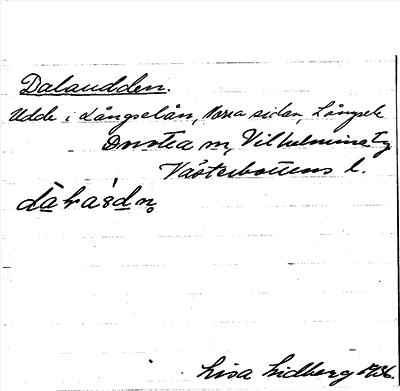 Dalaudden.
Udde i Långselån, Norra sidan, Långsele
Dorotea sn, Vilhelmina tg
Västerbottens l.
Lisa Lidberg 1936.